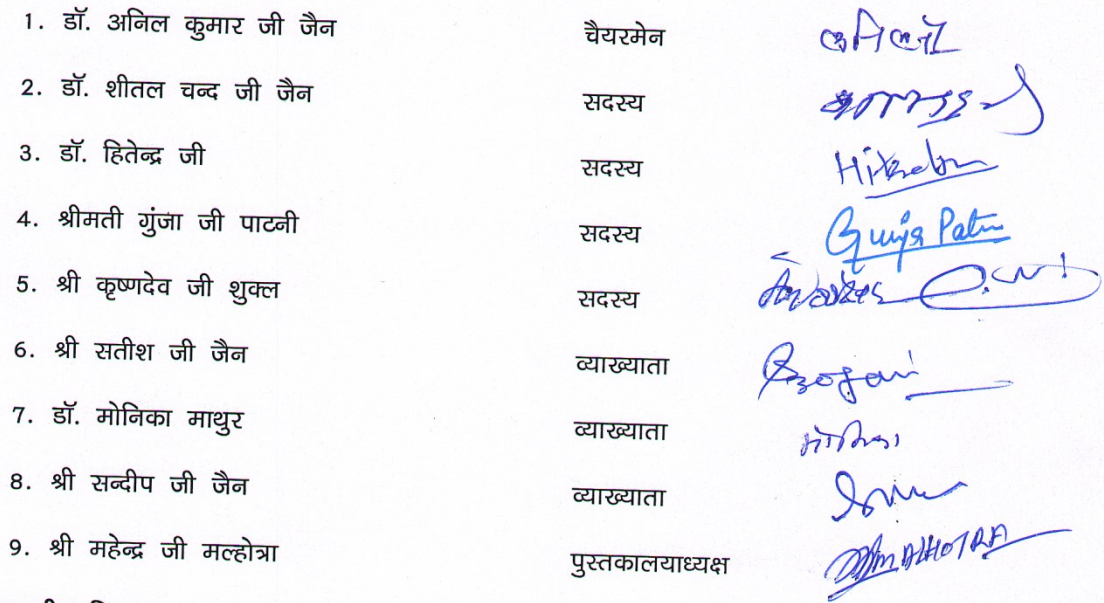 1. डॉ. अनिल कुमार जी जैन चैयरमेन
2. डॉ. शीतल चन्द जी जैन सदस्य
3. डॉ. हितेन्द्र जी सदस्य
4. श्रीमती गुंजा जी पाटनी सदस्य Gunja Patni
5. श्री कृष्णदेव जी शुक्ल सदस्य
6. श्री सतीश जी जैन व्याख्याता
7. डॉ. मोनिका माथुर व्याख्याता मोनिका
8. श्री सन्दीप जी जैन व्याख्याता
9. श्री महेन्द्र जी मल्होत्रा पुस्तकालयाध्यक्ष MALHOTRA